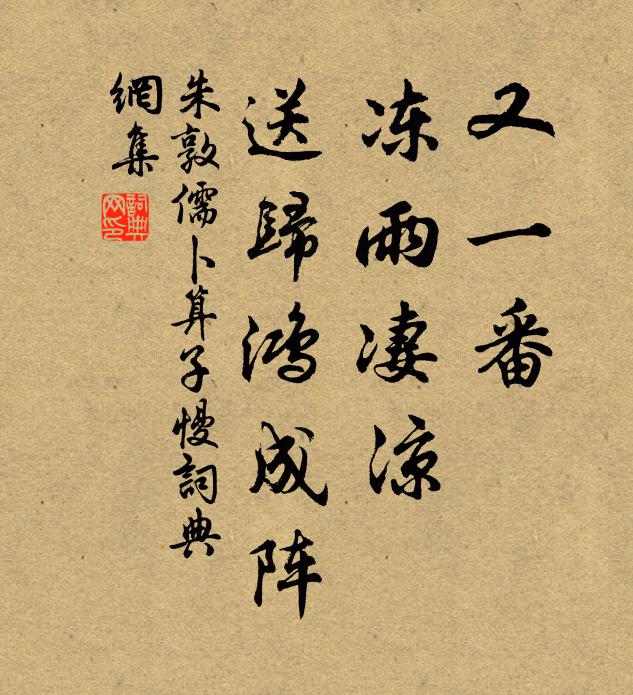 又一番
冻雨凄凉
送歸鸿成阵
朱敦儒卜算子慢詞典
網集
詞典网印